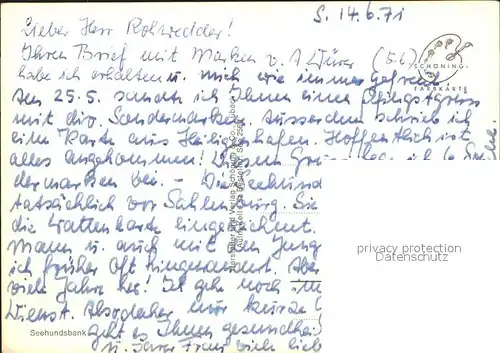 S. 14.6.71
Lieber Herr Rohwedder!
Ihren Brief mit Marken v. A Dürer (5.6.)
habe ich erhalten u. mich wie immer gefreut
Am 25.5. sandte ich Ihnen einen Pfingstgruss
mit div. Sondermarken. Ausserdem schrieb ich
eine Karte aus Heiligenhafen. Hoffentlich ist
alles angekommen! Diesem
dermarken bei. – Die Seehund
tatsächlich vor Sahlenburg. Sie
die Wattenkarte eingezeichnet.
Mann u. auch mit den Jung
ich früher oft hingewandert. Aber
viele Jahre her! Ich geh noch im
Dienst. Absender nur kurze
geht es Ihnen gesundhei
u. Ihrer Frau viele lieb
SCHÖNING
FARBKARTE
Seehundsbank
privacy protection
Datenschutz